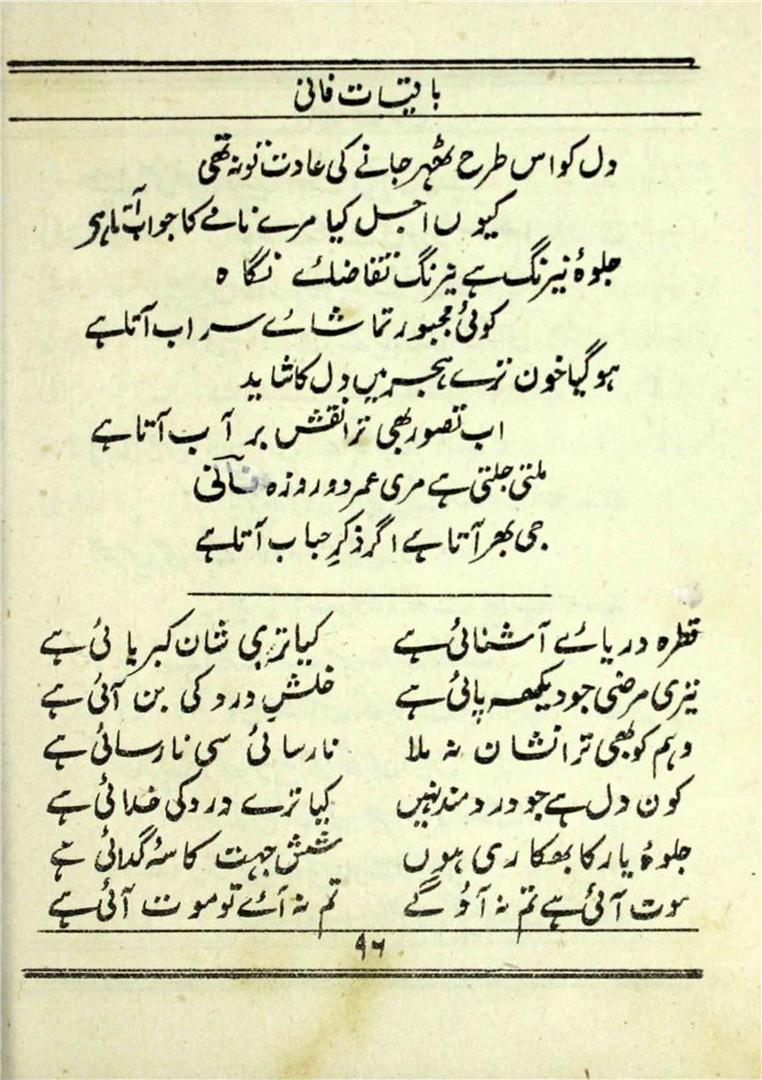 باقیات فانی
دل کو اس طرح ٹھہر جانے کی عادت تو نہ تھی
کیوں اجل کیا مرے نامے کا جواب آتا ہے
جلوۂ نیرنگ ہے نیرنگ تقاضائے نگاہ
کوئی مجبور تماشائے سراب آتا ہے
ہو گیا خون ترے ہجر میں دل کا شاید
اب تصور بھی ترا نقش بر آب آتا ہے
ملتی جلتی ہے مری عمر دو روزہ فانی
جی بھر آتا ہے اگر ذکرِ حباب آتا ہے
قطرہ دریائے آشنائی ہے کیا تری شان کبریائی ہے
تیری مرضی جو دیکھ پائی ہے خلشِ درد کی بن آئی ہے
وہم کو بھی ترا نشان نہ ملا نارسائی سی نارسائی ہے
کون دل ہے جو دردمند نہیں کیا ترے درد کی خدائی ہے
جلوۂ یار کا بھکاری ہوں شش جہت کاسۂ گدائی ہے
موت آئی ہے تم نہ آؤ گے تم نہ آئے تو موت آئی ہے
۹۶